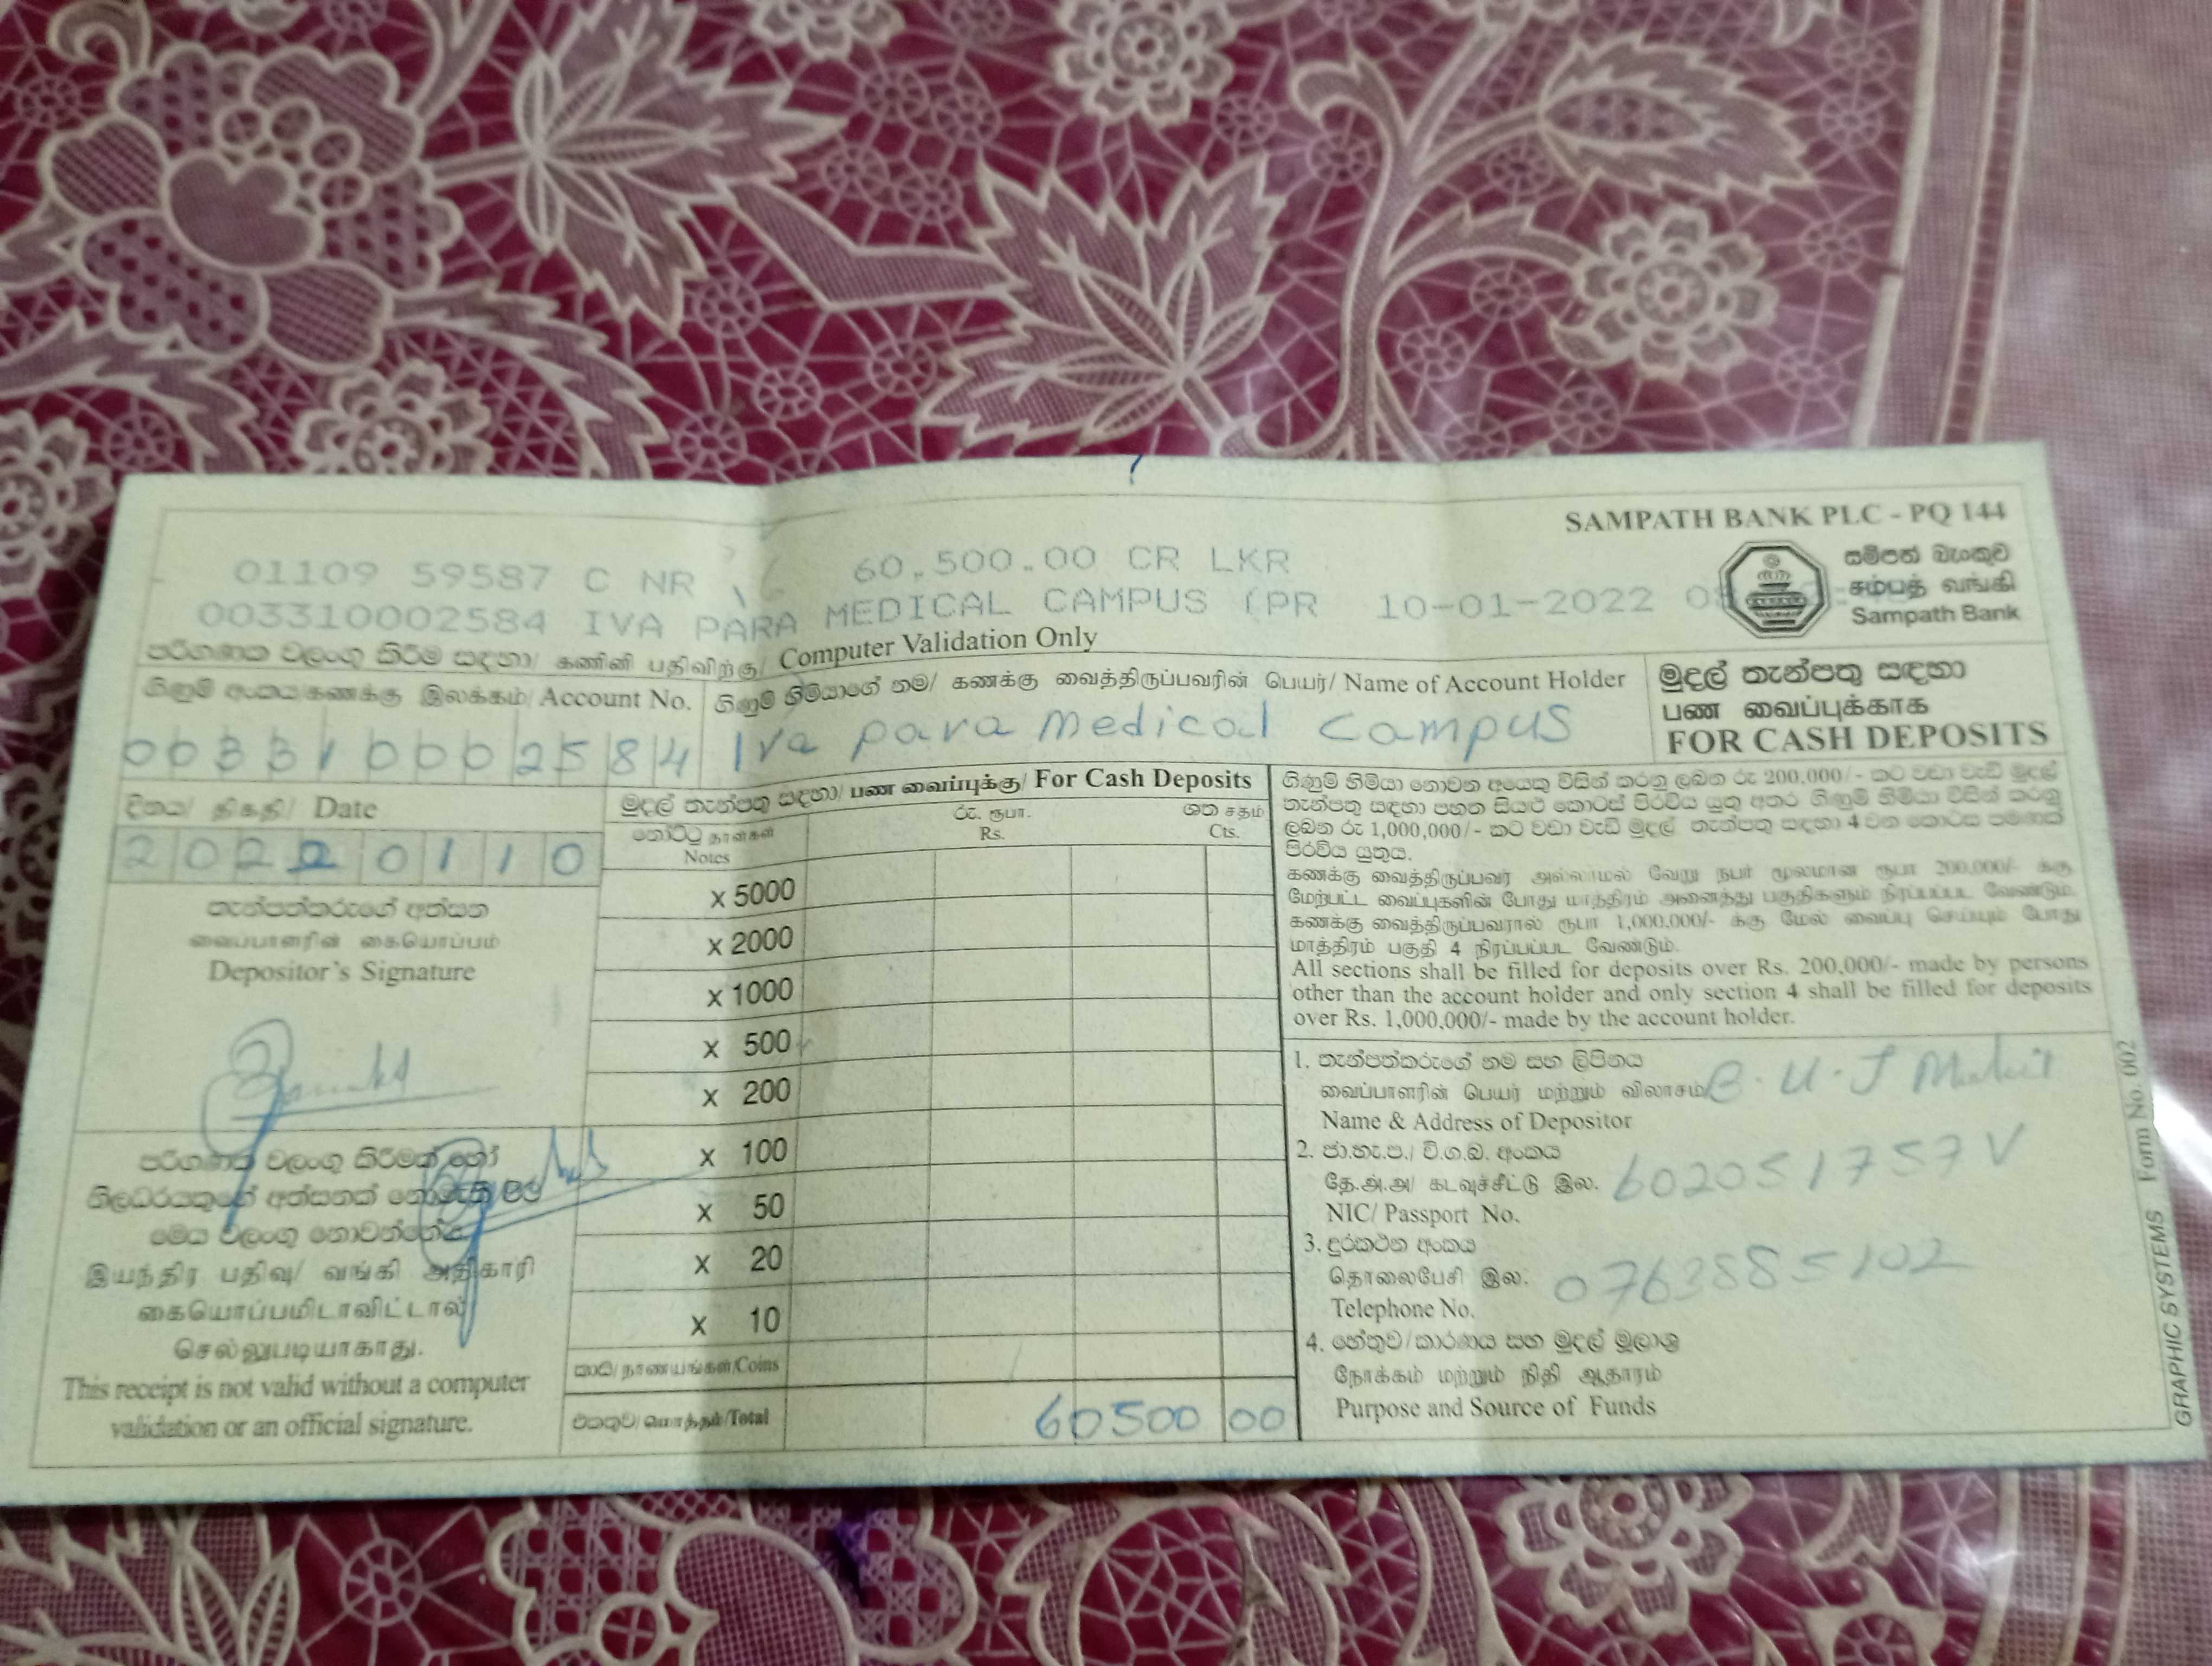 SAMPATH BANK PLC - PQ 144
සම්පත් බැංකුව
சம்பத் வங்கி
Sampath Bank
01109 59587 C NR 60,500.00 CR LKR
003310002584 IVA PARA MEDICAL CAMPUS (PR 10-01-2022
පරිගණක වලංගු කිරීම සඳහා/ கணினி பதிவிற்கு/ Computer Validation Only
ගිණුම් අංකය/கணக்கு இலக்கம்/ Account No.
003310002584
ගිණුම් හිමියාගේ නම/ கணக்கு வைத்திருப்பவரின் பெயர்/ Name of Account Holder
Iva para medical campus
මුදල් තැන්පතු සඳහා
பண வைப்புக்காக
FOR CASH DEPOSITS
දිනය/ திகதி/ Date
20220110
තැන්පත්කරුගේ අත්සන
வைப்பாளரின் கையொப்பம்
Depositor's Signature
පරිගණක වලංගු කිරීමක් හෝ
නිලධරයකුගේ අත්සනක් නොමැති විට
මෙය වලංගු නොවන්නේය
இயந்திர பதிவு/ வங்கி அதிகாரி
கையொப்பமிடாவிட்டால்
செல்லுபடியாகாது.
This receipt is not valid without a computer
validation or an official signature.
මුදල් තැන්පතු සඳහා/ பண வைப்புக்கு/ For Cash Deposits
නෝට්ටු தாள்கள்
Notes
රු. ரூபா.
Rs.
ශත சதம்
Cts.
x 5000
x 2000
x 1000
x 500
x 200
x 100
x 50
x 20
x 10
කාසි/நாணயங்கள்/Coins
එකතුව/மொத்தம்/Total 60500 00
ගිණුම් හිමියා නොවන අයෙකු විසින් කරනු ලබන රු 200,000/- කට වඩා වැඩි මුදල්
තැන්පතු සඳහා පහත සියළු කොටස් පිරවිය යුතු අතර ගිණුම් හිමියා විසින් කරනු
ලබන රු 1,000,000/- කට වඩා වැඩි මුදල් තැන්පතු සඳහා 4 වන කොටස පමණක්
පිරවිය යුතුය.
கணக்கு வைத்திருப்பவர் அல்லாமல் வேறு நபர் மூலமான ரூபா 200,000/- க்கு
மேற்பட்ட வைப்புகளின் போது மாத்திரம் அனைத்து பகுதிகளும் நிரப்பப்பட வேண்டும்.
கணக்கு வைத்திருப்பவரால் ரூபா 1,000,000/- க்கு மேல் வைப்பு செய்யும் போது
மாத்திரம் பகுதி 4 நிரப்பப்பட வேண்டும்.
All sections shall be filled for deposits over Rs. 200,000/- made by persons
other than the account holder and only section 4 shall be filled for deposits
over Rs. 1,000,000/- made by the account holder.
1. තැන්පත්කරුගේ නම සහ ලිපිනය
வைப்பாளரின் பெயர் மற்றும் விலாசம் B. U. J
Name & Address of Depositor
2. ජා.හැ.ප./ වි.ග.බ. අංකය
தே.அ.அ/ கடவுச்சீட்டு இல. 602051757V
NIC/ Passport No.
3. දුරකථන අංකය
தொலைபேசி இல. 0763885102
Telephone No.
4. හේතුව/කාරණය සහ මුදල් මූලාශ්‍ර
நோக்கம் மற்றும் நிதி ஆதாரம்
Purpose and Source of Funds
GRAPHIC SYSTEMS Form No. 002